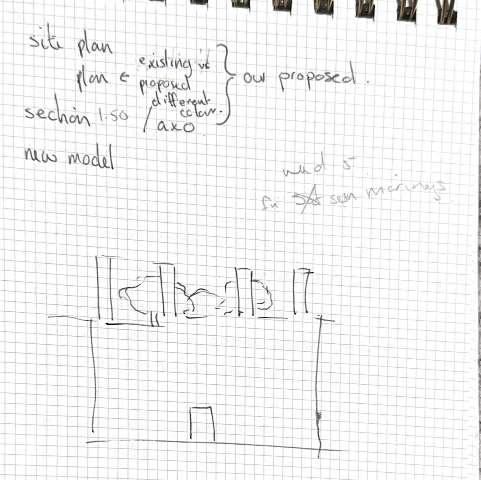 site plan
existing vs
plan & proposed } our proposed.
different
section 1.50 / colour.
axo
new model
wed 5
sun mornings